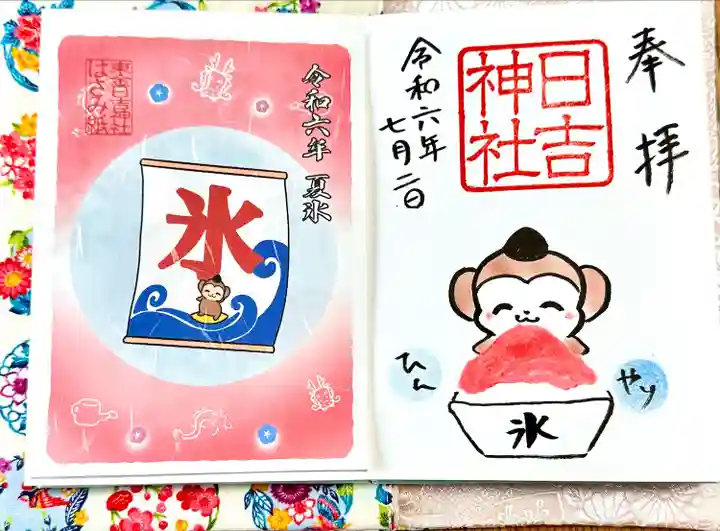 奉拝
日吉
神社
令和六年
七月二日
ひん
やり
氷
令和六年 夏氷
氷
東京日吉神社
はさみ紙